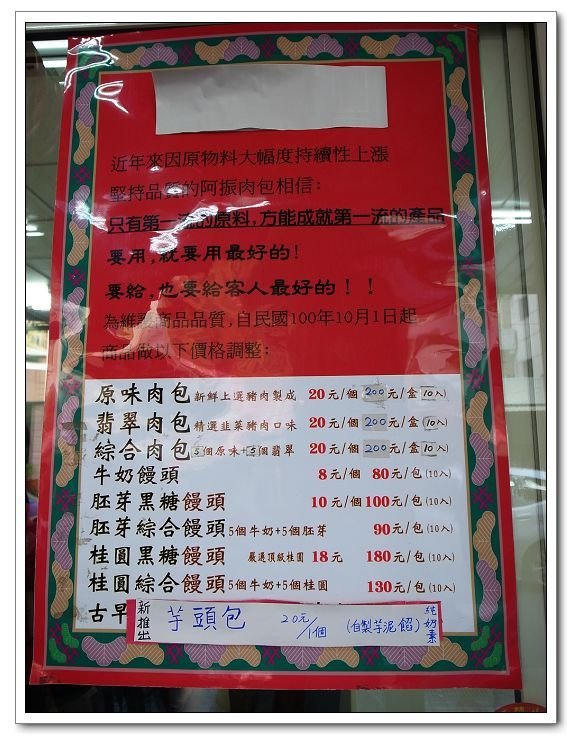 近年來因原物料大幅度持續性上漲
堅持品質的阿振肉包相信:
只有第一流的原料,方能成就第一流的產品
要用,就要用最好的!
要給,也要給客人最好的!!
為維護商品品質,自民國100年10月1日起
商品做以下價格調整:
原味肉包 新鮮上選豬肉製成 20元/個 200元/盒(10入)
翡翠肉包 精選韭菜豬肉口味 20元/個 200元/盒(10入)
綜合肉包 5個原味+5個翡翠 20元/個 200元/盒(10入)
牛奶饅頭 8元/個 80元/包(10入)
胚芽黑糖饅頭 10元/個 100元/包(10入)
胚芽綜合饅頭 5個牛奶+5個胚芽 90元/包(10入)
桂圓黑糖饅頭 嚴選頂級桂圓 18元 180元/包(10入)
桂圓綜合饅頭 5個牛奶+5個桂圓 130元/包(10入)
古早
新推出 芋頭包 20元/1個 (自製芋泥餡) 純奶素